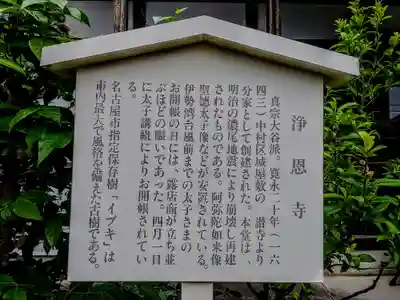 浄恩寺
真宗大谷派。寛永二十年(一六
四三)中村区城屋敷の 潜寺より
分家として創建された。本堂は、
明治の濃尾地震により崩壊し再建
されたものである。阿弥陀如来像
聖徳太子像などが安置されている。
伊勢湾台風前までの太子さまの
お開帳の日には、露店商が立ち並
ぶほどの賑いであった。四月一日
に太子講組によりお開帳されてい
る。
名古屋市指定保存樹「イブキ」は
市内最大で風格を備えた古樹である。